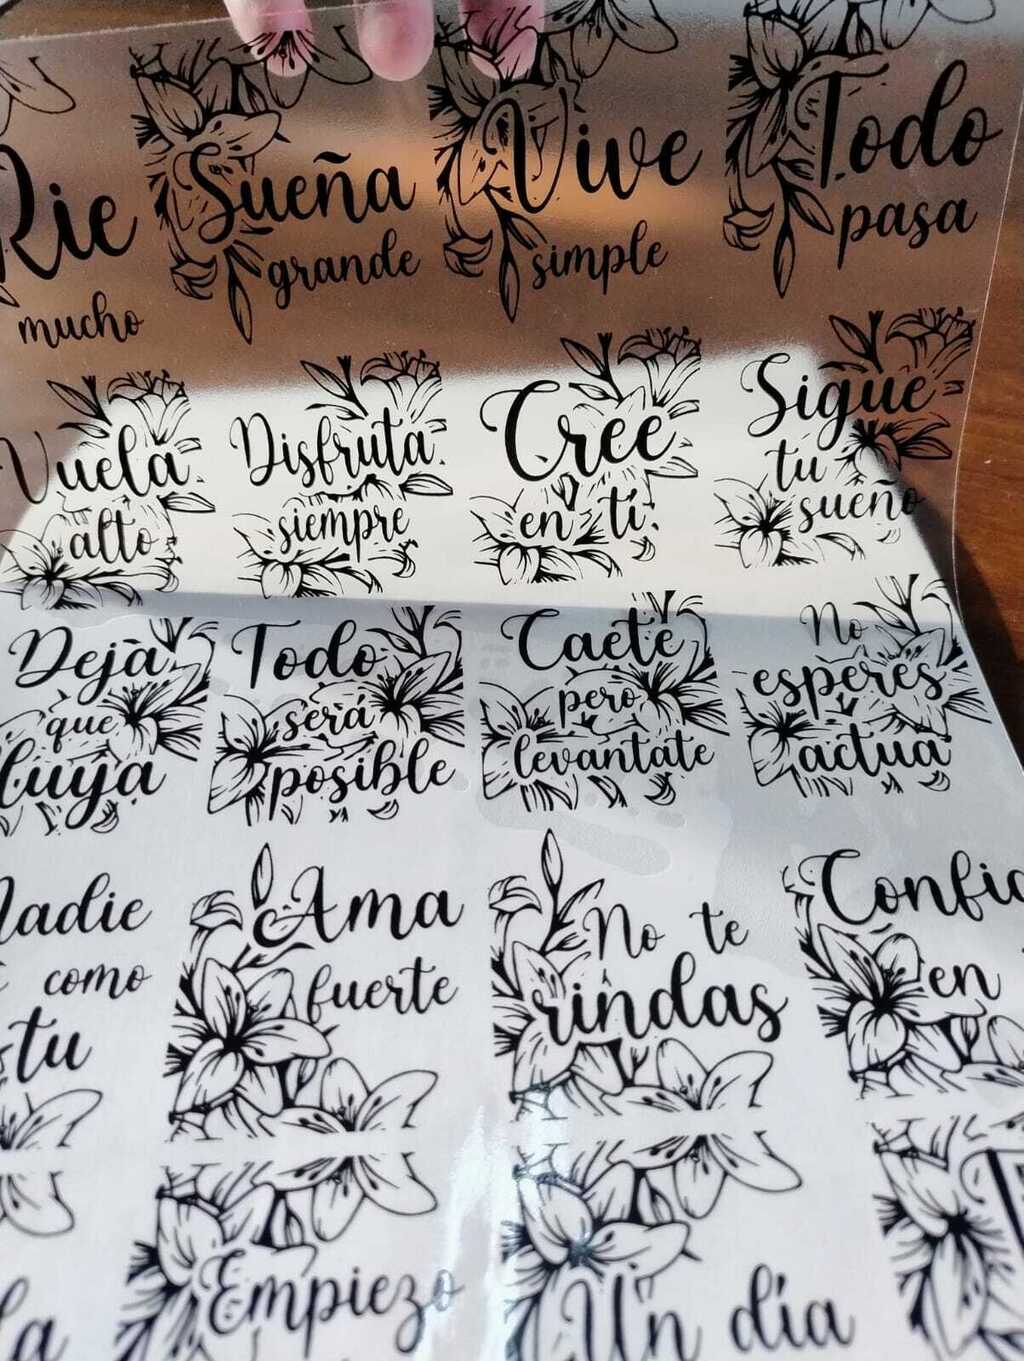 Rie
mucho
Sueña
grande
Vive
simple
Todo
pasa
Vuela
alto
Disfruta
siempre
Cree
en ti
Sigue
tu
sueño
Dejà
que
fluya
Todo
será
posible
Caete
pero
levantate
No
esperes
actua
Nadie
como
tu
Ama
fuerte
No te
rindas
en
Empiezo
Un día